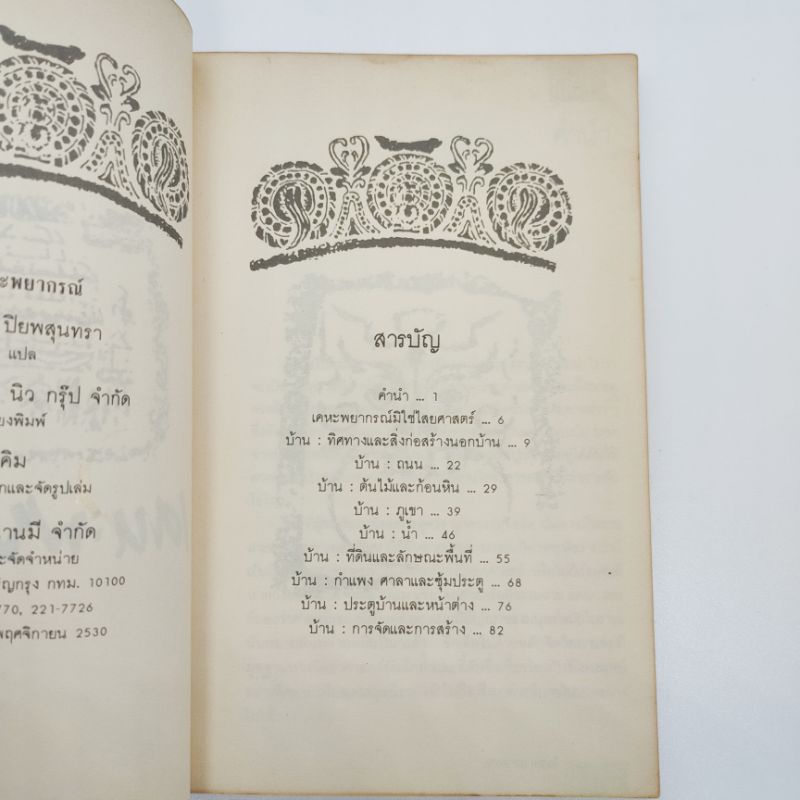 ะพยากรณ์
ปิยพสุนทรา
แปล
นิว กรุ๊ป จำกัด
ยงพิมพ์
คิม
กและจัดรูปเล่ม
านมี จำกัด
ะจัดจำหน่าย
ญกรุง กทม. 10100
770, 221-7726
พฤศจิกายน 2530
สารบัญ
คำนำ ... 1
เคหะพยากรณ์มิใช่ไสยศาสตร์ ... 6
บ้าน : ทิศทางและสิ่งก่อสร้างนอกบ้าน ... 9
บ้าน : ถนน ... 22
บ้าน : ต้นไม้และก้อนหิน ... 29
บ้าน : ภูเขา ... 39
บ้าน : น้ำ ... 46
บ้าน : ที่ดินและลักษณะพื้นที่ ... 55
บ้าน : กำแพง ศาลาและซุ้มประตู ... 68
บ้าน : ประตูบ้านและหน้าต่าง ... 76
บ้าน : การจัดและการสร้าง ... 82